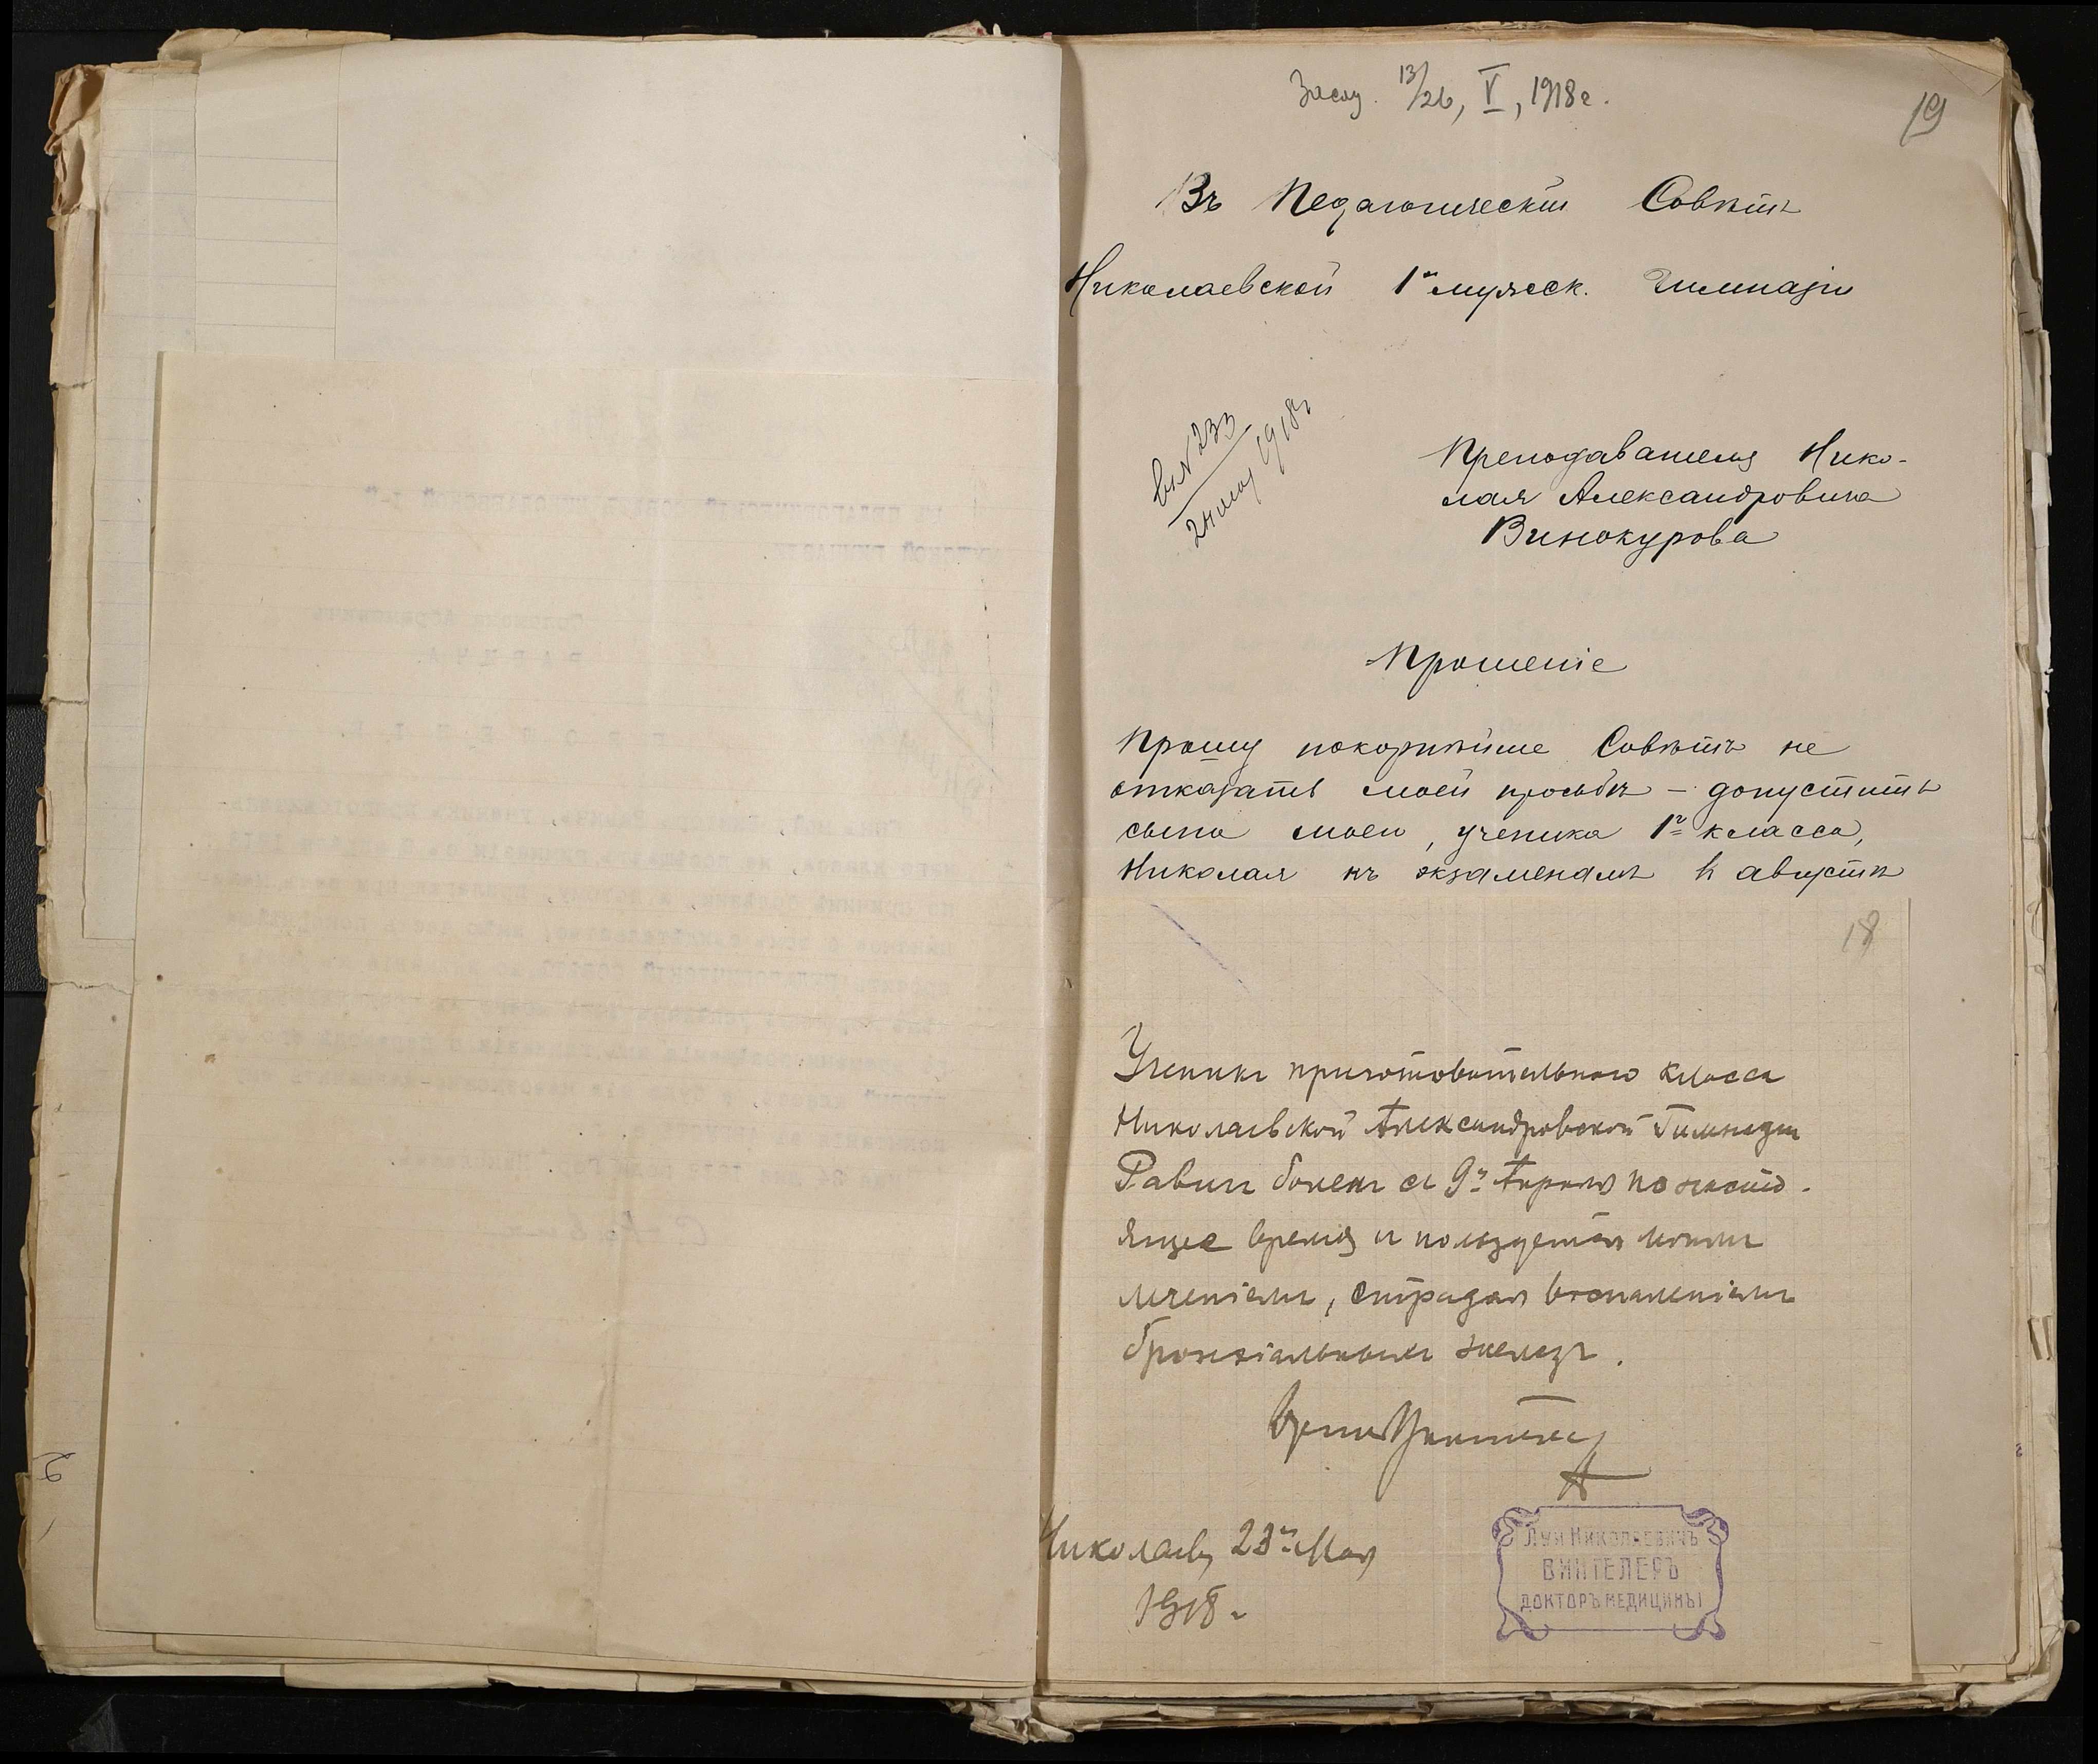 Засѣд. 13/26, V, 1918 г.
19
Въ Педагогическій Совѣтъ
Николаевской 1й мужеск. Гимназіи
вх № 233
24 мая 1918 г.
Преподавателя Нико-
лая Александровича
Винокурова
Прошеніе
Прошу покорнѣйше Совѣтъ не
отказать моей просьбѣ – допустить
сына моего, ученика 1го класса,
Николая къ экзаменамъ в августѣ
18
Ученикъ приготовительнаго класса
Николаевской Александровской Гимназіи
Равичъ боленъ съ 9го Апрѣля по насто-
ящее время и пользуется моимъ
леченіемъ, страдая воспаленіемъ
бронхіальныхъ железъ.
Врачъ
Николаевъ, 23го Мая
1918 г.
Луи Николаевичъ
ВИНТЕЛЕРЪ
ДОКТОРЪ МЕДИЦИНЫ